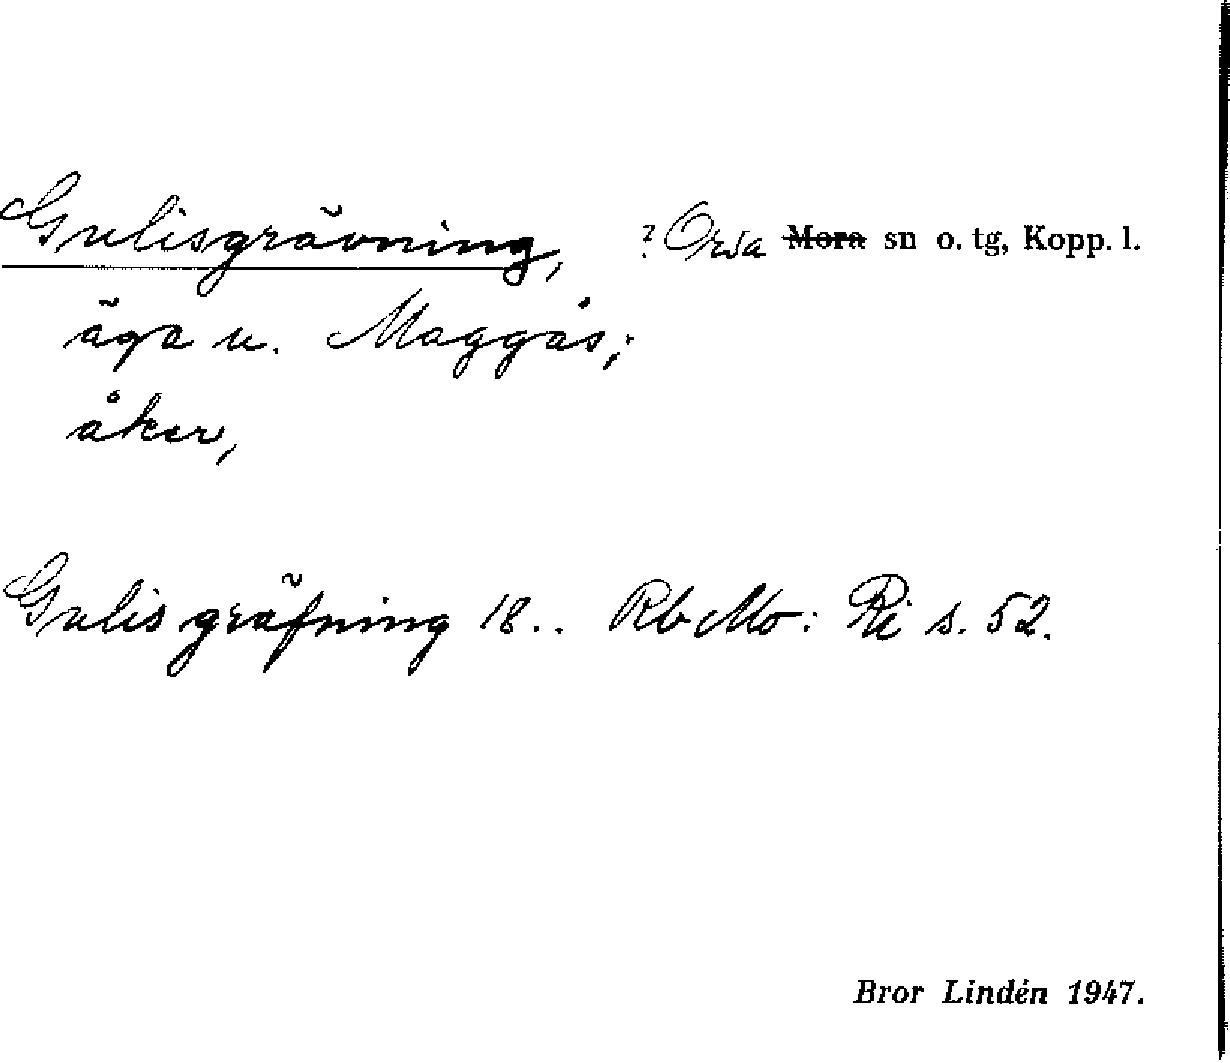 Gulisgrävning, ? Orsa Mora sn o. tg, Kopp. l.
äga u. Maggås;
åker,
Gulis gräfning 18.. Rb Mo: Ri s. 52.
Bror Lindén 1947.